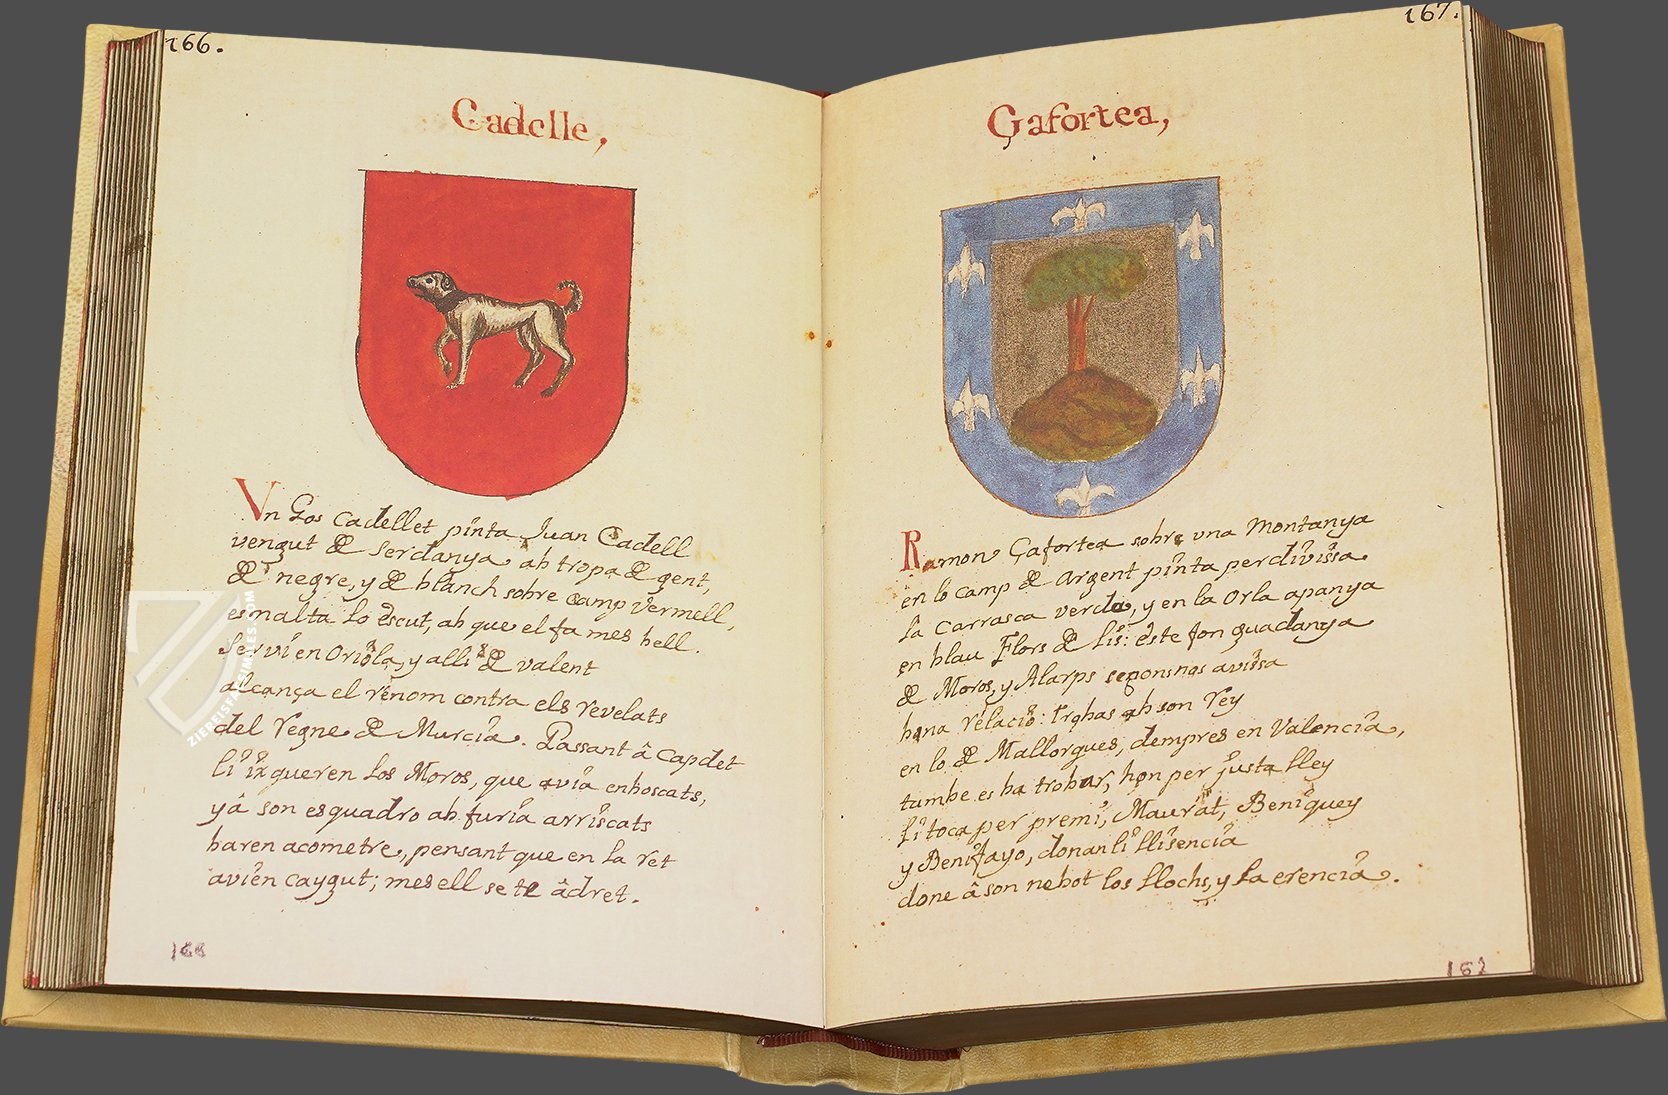 166.
Cadelle,
Vn Gos cadellet pinta Juan Cadell
vengut de Serdanya ab tropa de gent,
de negre, y de blanch sobre camp vermell,
esmalta lo escut, ab que el fa mes bell.
Servi en Oriola, y alli de valent
alcança el renom contra els revelats
del regne de Murcia. Passant â Capdet
li ixqueren los Moros, que avia enboscats,
y â son esquadro ab furia arriscats
haren acometre, pensant que en la ret
avien caygut; mes ell se te âdret.
166
ZIEREISFACSIMILES.COM
167.
Çafortea,
Ramon Çafortea sobre vna montanya
en lo camp de argent pinta per divissa
la carrasca verda, y en la orla apanya
en blau Flors de Lis: este fon guadanya
de Moros, y Alarps avissa
bona relacio: ab son rey
en lo de Mallorques, dempres en Valencia,
tambe es ha trobar, hon per justa lley
li toca per premi, Maurat, Beniquey
y Benifayo, donanli llisencia
done â son nebot los llochs, y la erencia.
167